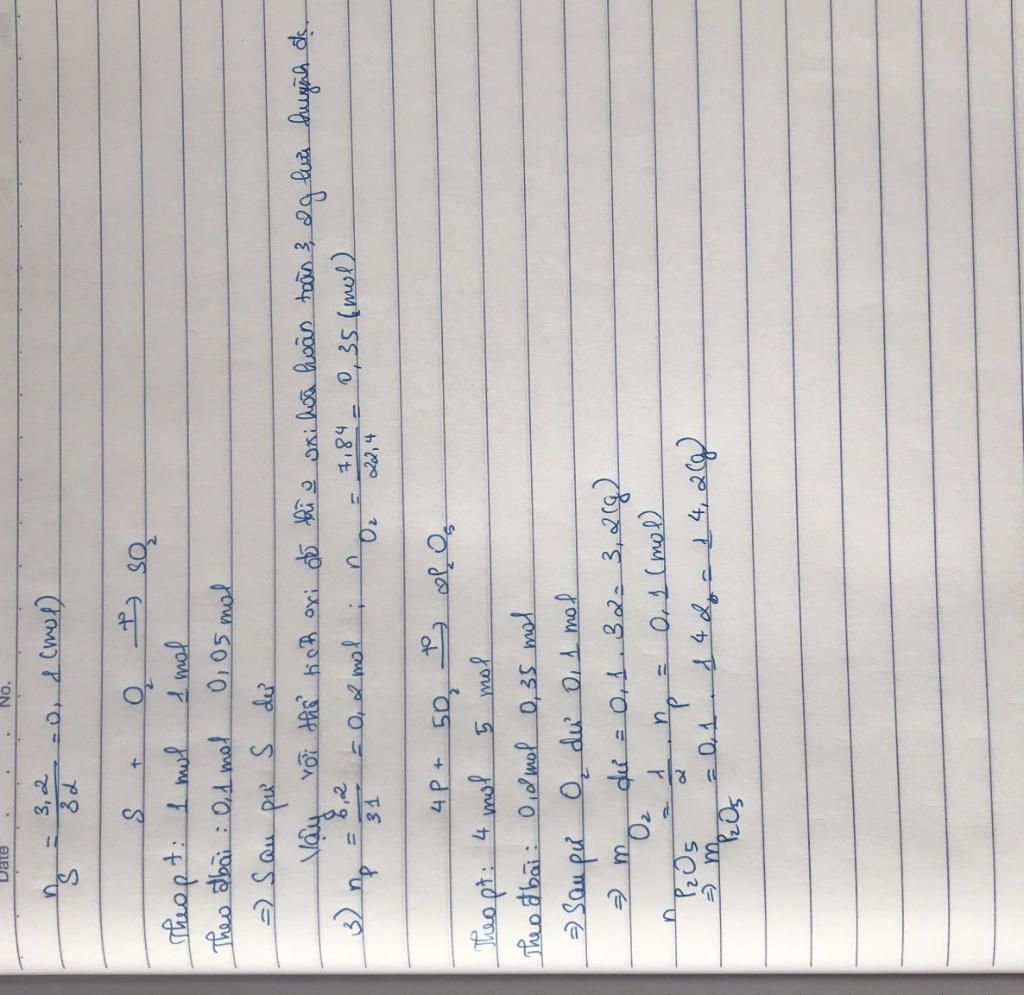 Date . . . No.
n_S = 3,2/32 = 0,1 (mol)
S + O₂ —t°→ SO₂
Theo pt: 1 mol 1 mol
Theo đbài: 0,1 mol 0,05 mol
=) Sau pứ S dư
Vậy với thể tích oxi đó thì o oxi hoá hoàn toàn 3,2g lưu huỳnh đc.
3) n_P = 6,2/31 = 0,2 mol ; n_O₂ = 7,84/22,4 = 0,35 (mol)
4P + 5O₂ —t°→ 2P₂O₅
Theo pt: 4 mol 5 mol
Theo đbài: 0,2 mol 0,35 mol
=) Sau pứ O₂ dư 0,1 mol
=) m_O₂ dư = 0,1 . 32 = 3,2 (g)
n_P₂O₅ = 1/2 . n_P = 0,1 (mol)
=) m_P₂O₅ = 0,1 . 142 = 14,2 (g)